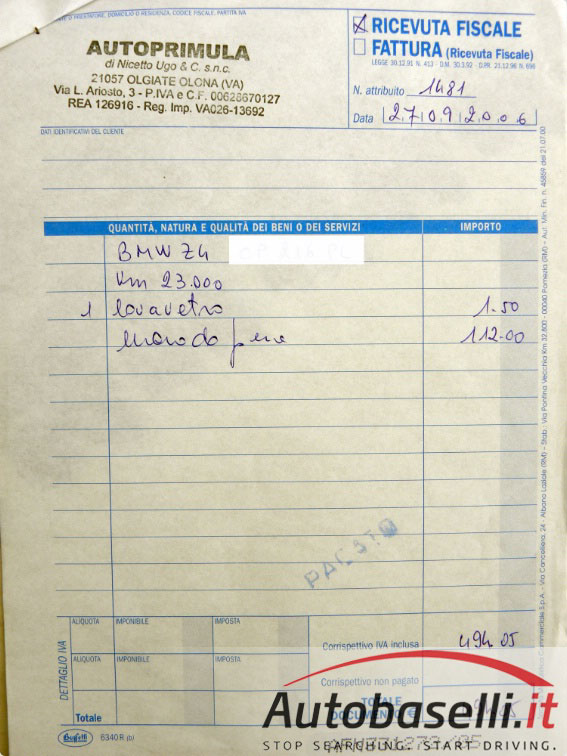 O PRESTATORE, DOMICILIO O RESIDENZA, CODICE FISCALE, PARTITA IVA
AUTOPRIMULA
di Nicetto Ugo & C. s.n.c.
21057 OLGIATE OLONA (VA)
Via L. Ariosto, 3 - P.IVA e C.F. 00626670127
REA 126916 - Reg. Imp. VA026-13692
X RICEVUTA FISCALE
FATTURA (Ricevuta Fiscale)
LEGGE 30.12.91 N. 413 - D.M. 30.3.92 - D.P.R. 21.12.96 N. 696
N. attribuito 1481
Data 27 09 2006
DATI IDENTIFICATIVI DEL CLIENTE
QUANTITÀ, NATURA E QUALITÀ DEI BENI O DEI SERVIZI IMPORTO
BMW Z4
Km 23.000
1 lavavetro 1.50
112.00
PAGATO
DETTAGLIO IVA
ALIQUOTA IMPONIBILE IMPOSTA
Corrispettivo IVA inclusa 494.05
ALIQUOTA IMPONIBILE IMPOSTA
Corrispettivo non pagato
Totale
TOTALE
DOCUMENTO €
Buffetti 6340R (b)
Autobaselli.it
STOP SEARCHING. START DRIVING.